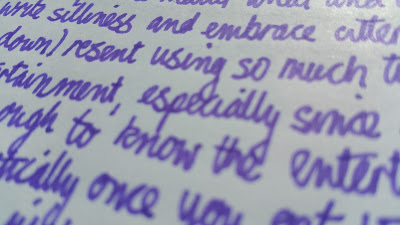 write silliness and embrace utter
down) resent using so much t
rtainment, especially since
ough to know the entert
tically once you get